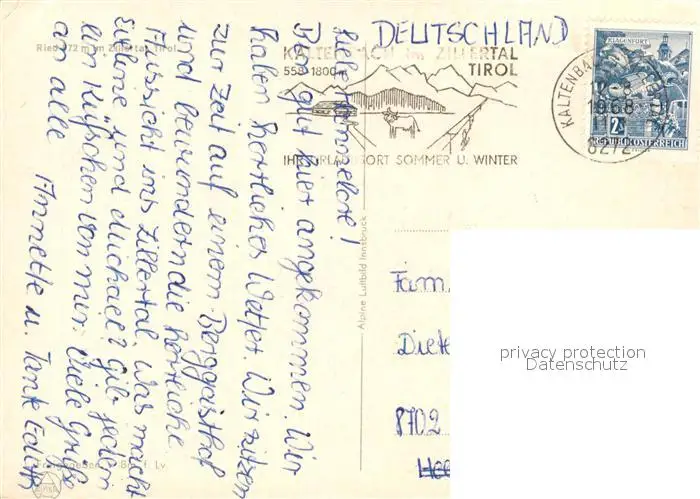 Ried 572 m im Zillertal, Tirol
DEUTSCHLAND
KALTENBACH im ZILLERTAL
TIROL
558-1800
IHR URLAUBSORT SOMMER U. WINTER
KALTENBACH
1968
6272
KLAGENFURT
2 S
REPUBLIK ÖSTERREICH
Liebe Hannelore!
Bin gut hier angekommen. Wir
haben herrliches Wetter. Wir sitzen
zur Zeit auf einem Berggasthof
und bewundern die herrliche
Aussicht ins Zillertal. Was macht
und Michael? Gib jedem
ein Küßchen von mir. Viele Grüße
an alle
Annette u. Tante Edith
Alpine Luftbild Innsbruck
Fam.
Diete
8702
privacy protection
Datenschutz
Freigegeben v. Bm. f. Lv.